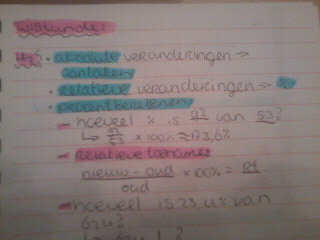 wiskunde:
• absolute veranderingen ⇒
aantallen
• relatieve veranderingen ⇒ %
• procentberekenen
- hoeveel % is 92 van 53?
↳ 92/53 × 100% ≈ 173,6%
- relatieve toename
nieuw - oud / oud × 100% = Rt
- hoeveel is 23,4% van